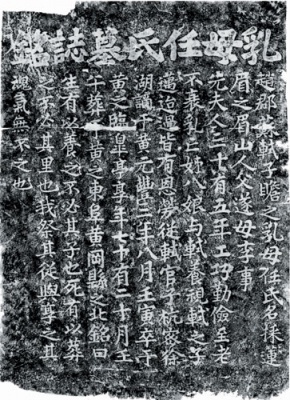 乳母任氏墓誌銘
趙郡蘇軾子瞻之乳母任氏名採蓮
眉之眉山人父遂母李事
先夫人三十有五年工巧勤儉至老
不衰乳亡姊八娘與軾養視軾之子
邁迨過皆有恩勞從軾官于杭密徐
湖謫于黃元豐三年八月壬寅卒于
黃之臨皋亭享年七十有二十月壬
午葬于黃之東阜黃岡縣之北銘曰
生有以養之不必其子也死有以葬
之不必其里也我祭其從與享之其
魂氣無不之也